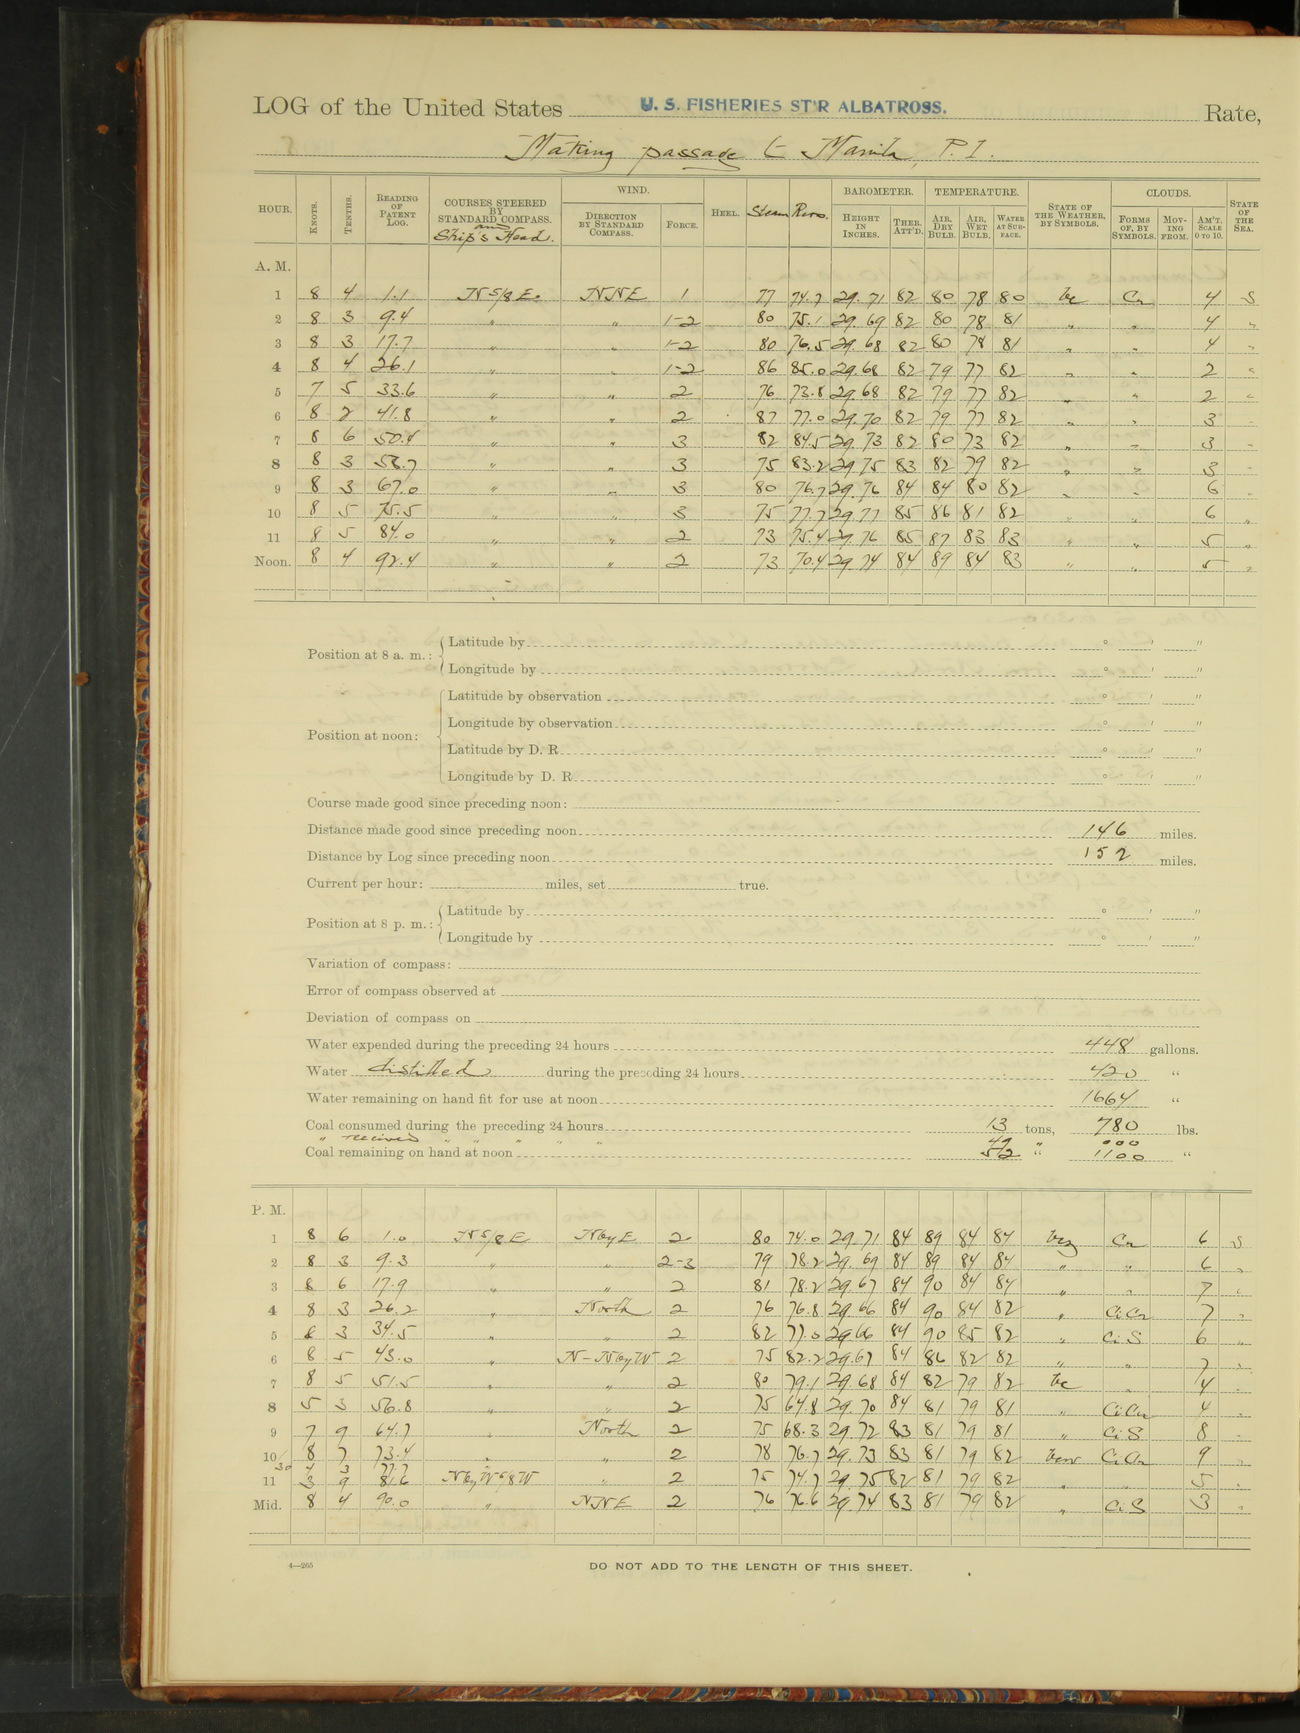 LOG of the United States U. S. FISHERIES ST'R ALBATROSS. Rate,
Making passage to Manila, P. I.
HOUR. KNOTS. TENTHS. READING OF PATENT LOG. COURSES STEERED BY STANDARD COMPASS. and Ship's Head. WIND. DIRECTION BY STANDARD COMPASS. FORCE. HEEL. Steam Revs. BAROMETER. HEIGHT IN INCHES. THER. ATT'D. TEMPERATURE. AIR, DRY BULB. AIR, WET BULB. WATER AT SURFACE. STATE OF THE WEATHER, BY SYMBOLS. CLOUDS. FORMS OF, BY SYMBOLS. MOVING FROM. AM'T, SCALE 0 TO 10. STATE OF THE SEA.
A. M.
1 8 4 1.1 N 5/8 E. NNE 1 77 74.7 29.71 82 80 78 80 bc Cu 4 S
2 8 3 9.4 " " 1-2 80 75.1 29.69 82 80 78 81 " " 4 "
3 8 3 17.7 " " 1-2 80 76.5 29.68 82 80 78 81 " " 4 "
4 8 4 26.1 " " 1-2 86 85.0 29.68 82 79 77 82 " " 2 "
5 7 5 33.6 " " 2 76 73.8 29.68 82 79 77 82 " " 2 "
6 8 2 41.8 " " 2 87 77.0 29.70 82 79 77 82 " " 3 "
7 8 6 50.4 " " 3 82 84.5 29.73 82 80 73 82 " " 3 "
8 8 3 58.7 " " 3 75 83.2 29.75 83 82 79 82 " " 3 "
9 8 3 67.0 " " 3 80 76.7 29.76 84 84 80 82 " " 6 "
10 8 5 75.5 " " 3 75 77.7 29.77 85 86 81 82 " " 6 "
11 8 5 84.0 " " 2 73 75.4 29.76 85 87 83 83 " " 5 "
Noon. 8 4 92.4 " " 2 73 70.4 29.74 84 89 84 83 " " 5 "
Position at 8 a. m.:
Latitude by ° ′ ″
Longitude by ° ′ ″
Position at noon:
Latitude by observation ° ′ ″
Longitude by observation ° ′ ″
Latitude by D. R. ° ′ ″
Longitude by D. R. ° ′ ″
Course made good since preceding noon:
Distance made good since preceding noon 146 miles.
Distance by Log since preceding noon 152 miles.
Current per hour: miles, set true.
Position at 8 p. m.:
Latitude by ° ′ ″
Longitude by ° ′ ″
Variation of compass:
Error of compass observed at
Deviation of compass on
Water expended during the preceding 24 hours 448 gallons.
Water distilled during the preceding 24 hours 420 "
Water remaining on hand fit for use at noon 1664 "
Coal consumed during the preceding 24 hours 13 tons, 780 lbs.
" received " " " " " " 000
Coal remaining on hand at noon 52 " 1100 "
P. M.
1 8 6 1.0 N 5/8 E NbyE 2 80 74.0 29.71 84 89 84 84 bcz Cu 6 S
2 8 3 9.3 " " 2-3 79 78.2 29.69 84 89 84 84 " " 6 "
3 8 6 17.9 " " 2 81 78.2 29.67 84 90 84 84 " " 7 "
4 8 3 26.2 " North 2 76 76.8 29.66 84 90 84 82 " Ci Cu 7 "
5 8 3 34.5 " " 2 82 77.0 29.66 84 90 85 82 " Ci S 6 "
6 8 5 43.0 " N-NbyW 2 75 82.2 29.67 84 86 82 82 " " 7 "
7 8 5 51.5 " " 2 80 79.1 29.68 84 82 79 82 bc " 4 "
8 5 3 56.8 " " 2 75 64.8 29.70 84 81 79 81 " Ci Cu 4 "
9 7 9 64.7 " North 2 75 68.3 29.72 83 81 79 81 " Ci S 8 "
10 8 7 73.4 " " 2 78 76.7 29.73 83 81 79 82 Ci Cu 9 "
30 4 3 77.7
11 3 9 81.6 NbyW 5/8 W " 2 75 74.7 29.75 82 81 79 82 " " 5 "
Mid. 8 4 90.0 " NNE 2 76 76.6 29.74 83 81 79 82 " Ci S 3 "
4—265
DO NOT ADD TO THE LENGTH OF THIS SHEET.